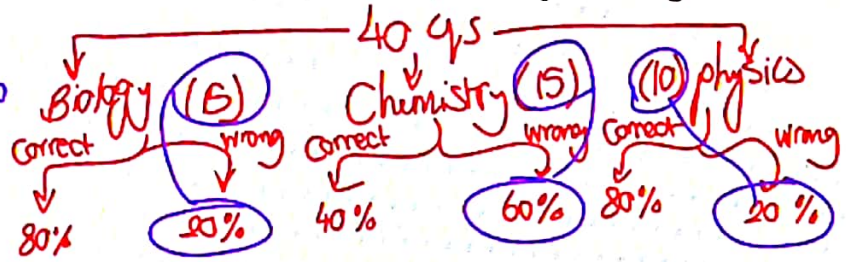 40 qs
Biology (15) Chemistry (15) (10) physics
correct wrong correct wrong correct wrong
80% 20% 40% 60% 80% 20%